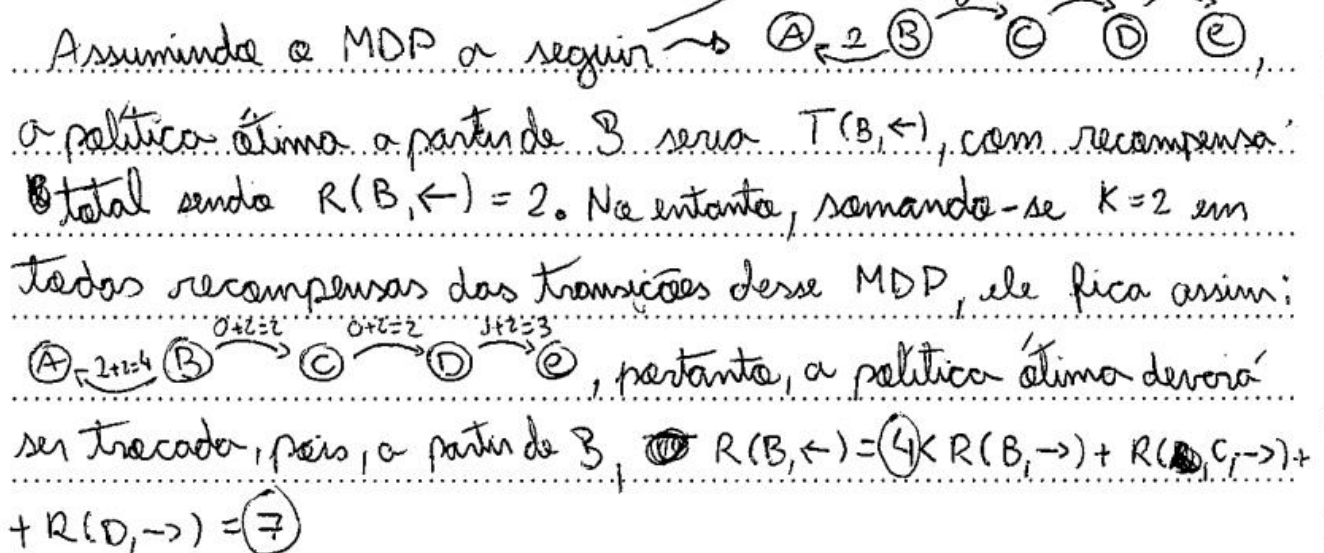 Assumindo o MDP a seguir → A 2 B C D e,
a política ótima a partir de B seria T(B,←), com recompensa
total sendo R(B,←) = 2. No entanto, somando-se K=2 em
todas recompensas das transições desse MDP, ele fica assim:
A 2+2=4 B 0+2=2 C 0+2=2 D 1+2=3 e, portanto, a política ótima deverá
ser trocada, pois, a partir de B, R(B,←)=4< R(B,→)+ R(C,→)+
+ R(D,→) = 7